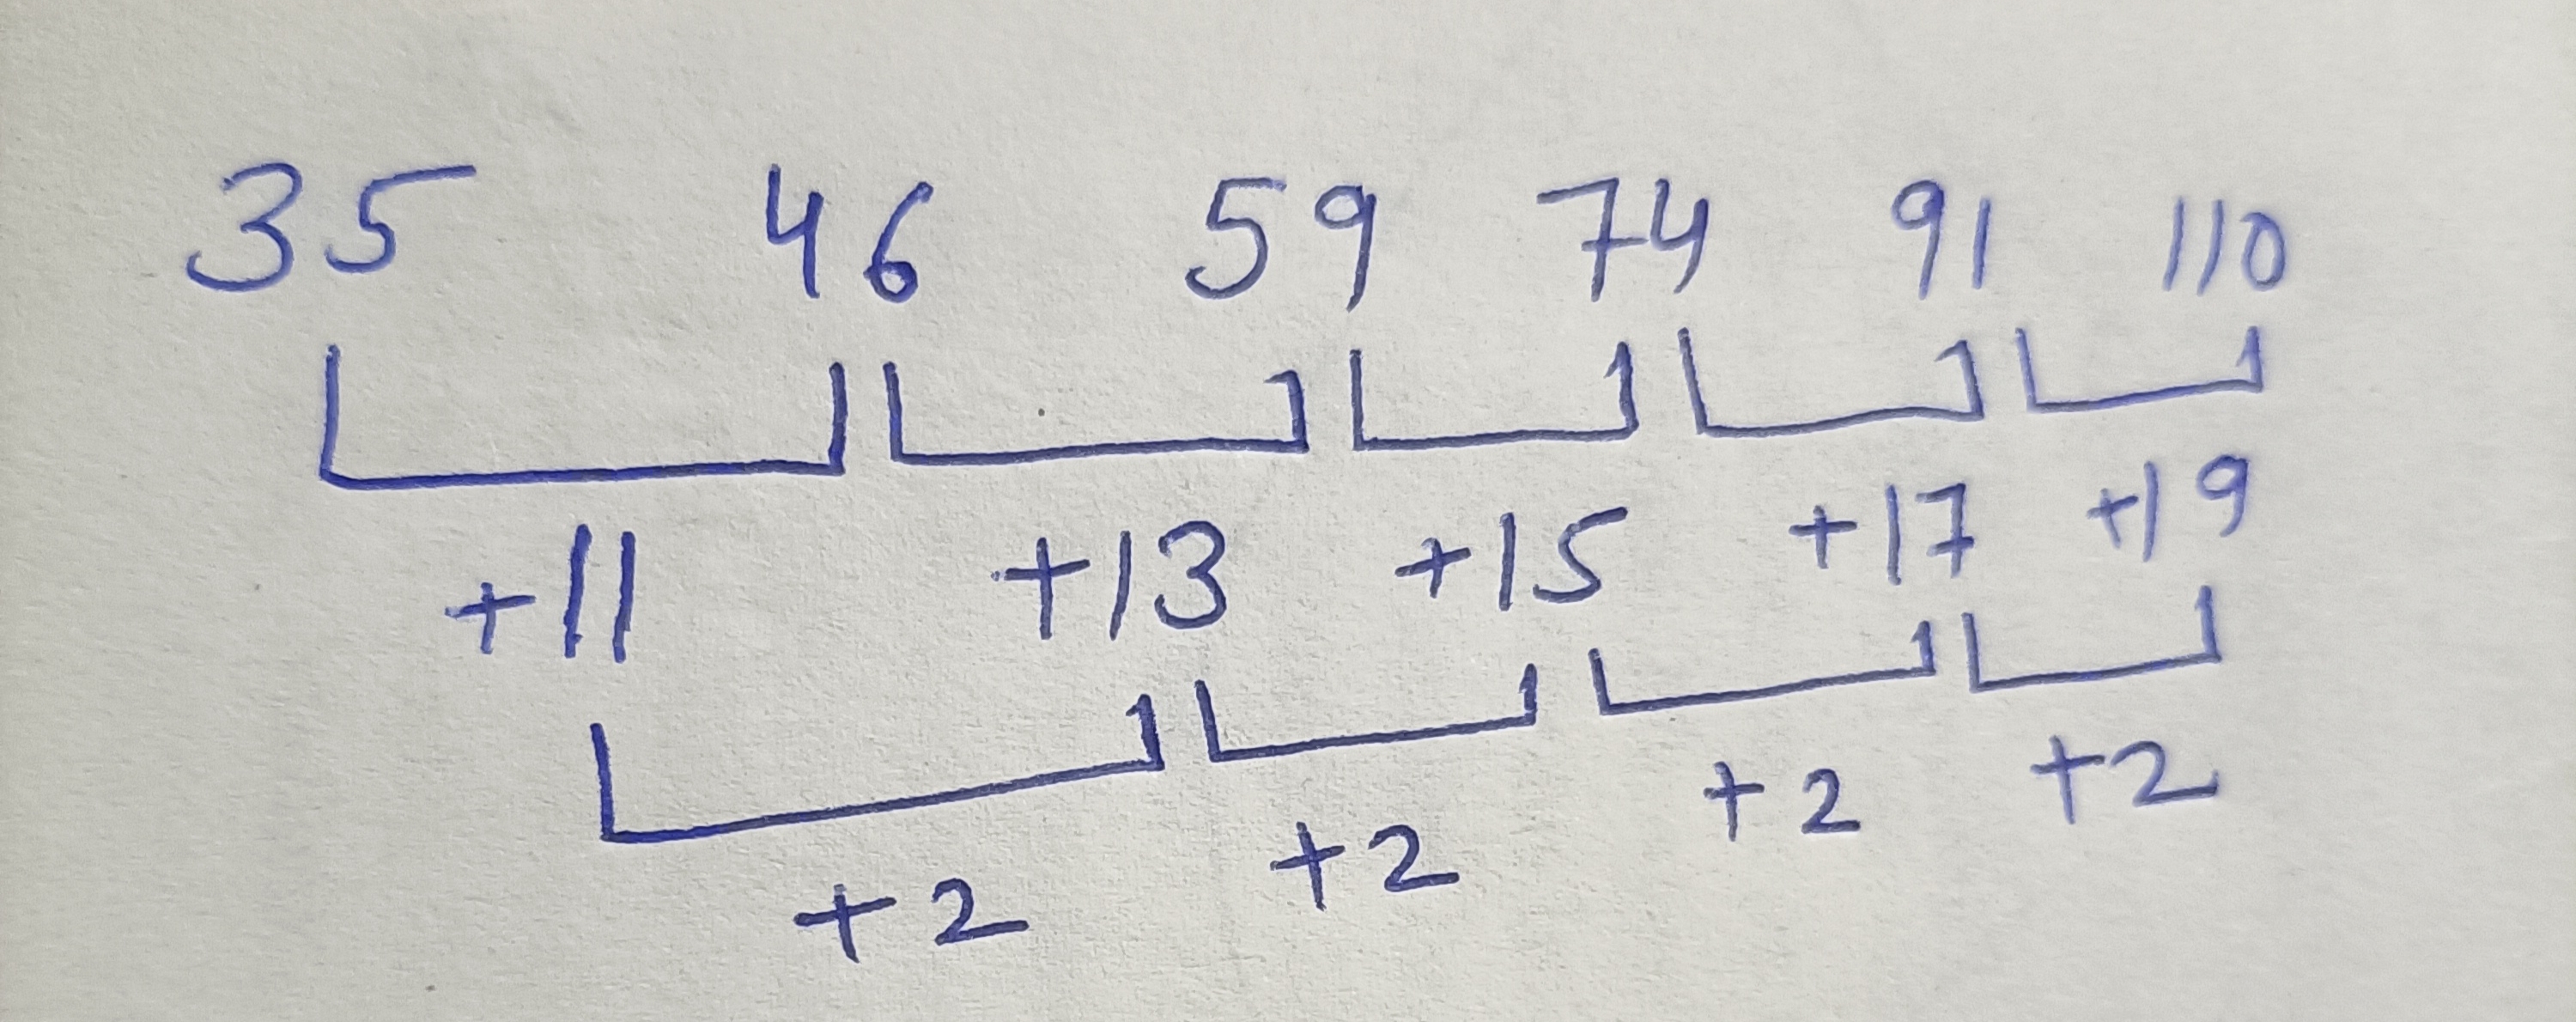 35 46 59 74 91 110
+11 +13 +15 +17 +19
+2 +2 +2 +2